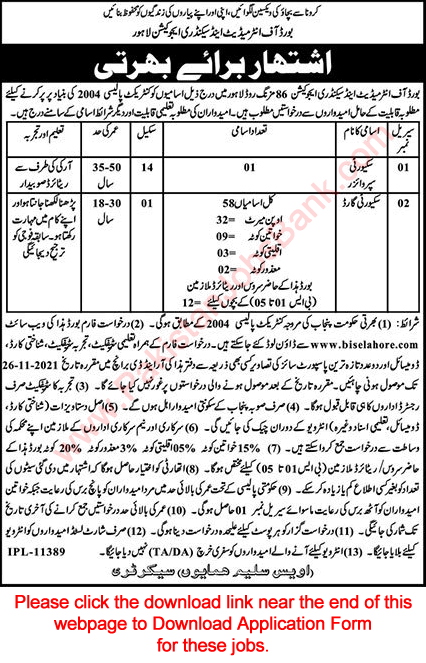 کرونا سے بچاؤ کی ویکسین لگوائیں، اپنی اور اپنے پیاروں کی زندگیوں کو محفوظ بنائیں
بورڈ آف انٹرمیڈیٹ اینڈ سیکنڈری ایجوکیشن لاہور
اشتہار برائے بھرتی
بورڈ آف انٹرمیڈیٹ اینڈ سیکنڈری ایجوکیشن 86 مزنگ روڈ لاہور میں درج ذیل اسامیوں کو کنٹریکٹ پالیسی 2004 کی بنیاد پر پُر کرنے کیلئے
مطلوبہ قابلیت کے حامل امیدواروں سے درخواستیں مطلوب ہیں۔ امیدواران کی مطلوبہ تعلیمی قابلیت اور دیگر شرائط اسامی کے سامنے درج ہیں۔
سیریل نمبر | اسامی کا نام | تعداد اسامی | سکیل | عمر کی حد | تعلیم اور تجربہ
01 | سکیورٹی سپروائزر | 01 | 14 | 35-50 سال | آرمی کی طرف سے ریٹائرڈ صوبیدار
02 | سکیورٹی گارڈ | کل اسامیاں 58 | 01 | 18-30 سال | پڑھنا لکھنا جانتا ہو اور اپنے کام میں مہارت رکھتا ہو۔ سابقہ فوجی کو ترجیح دیجائیگی
اوپن میرٹ =32
خواتین کوٹہ =09
اقلیتی کوٹہ =03
معذور کوٹہ =02
بورڈ ہذا کے حاضر سروس اور ریٹائرڈ ملازمین
(بی ایس 01 تا 05) کے بچوں کیلئے =12
شرائط: (1) بھرتی حکومت پنجاب کی مروجہ کنٹریکٹ پالیسی 2004 کے مطابق ہو گی۔ (2) درخواست فارم بورڈ ہذا کی ویب سائٹ
www.biselahore.com سے ڈاؤن لوڈ کئے جا سکتے ہیں۔ درخواست فارم کے ہمراہ تعلیمی سرٹیفکیٹ، تجربہ سرٹیفکیٹ، شناختی کارڈ،
ڈومیسائل اور دو عدد تازہ ترین پاسپورٹ سائز کی تصاویر کسی بھی ذریعہ سے دفتر ہذا کی آر اینڈ ڈی برانچ میں مقررہ تاریخ 26-11-2021
تک موصول ہونی چاہئیں۔ مقررہ تاریخ کے بعد موصول ہونے والی درخواستوں پر غور نہیں کیا جائے گا۔ (3) تجربہ کا سرٹیفکیٹ صرف
رجسٹرڈ اداروں کا ہی قابل قبول ہوگا۔ (4) صرف صوبہ پنجاب کے سکونتی امیدوار اہل ہوں گے۔ (5) اصل دستاویزات (شناختی کارڈ،
ڈومیسائل، تعلیمی اسناد وغیرہ) انٹرویو کے دوران چیک کی جائیں گی۔ (6) سرکاری اور نیم سرکاری اداروں کے ملازمین اپنے محکمہ کی
وساطت سے درخواست جمع کروا سکتے ہیں۔ (7) 15% خواتین کوٹہ 05% اقلیتی کوٹہ 3% معذور کوٹہ 20% کوٹہ بورڈ ہذا کے
حاضر سروس / ریٹائرڈ ملازمین (بی ایس 01 تا 05) کیلئے مختص ہوگا۔ (8) اتھارٹی کو اختیار حاصل ہوگا کہ اشتہار میں دی گئی سیٹوں کی
تعداد کو بغیر کسی اطلاع کم یا زیادہ کر سکے۔ (9) حکومتی پالیسی کے تحت عمر کی بالائی حد میں مرد امیدواران کو پانچ برس کی رعایت جبکہ خواتین
امیدواران کو آٹھ برس کی رعایت ماسوائے سیریل نمبر 01 حاصل ہو گی۔ (10) عمر کی بالائی حد درخواستیں جمع کرانے کی آخری تاریخ
تک شمار کی جائیگی۔ (11) درخواست گزار کو ہر پوسٹ کیلئے علیحدہ درخواست دینا ہو گی۔ (12) صرف شارٹ لسٹڈ امیدواروں کو انٹرویو
کیلئے بلایا جائیگا۔ (13) انٹرویو کیلئے آنے والے امیدواروں کو سفری خرچ (TA/DA) نہیں دیا جائیگا۔ IPL-11389
(اویس سلیم ہمایوں) سیکرٹری
Please click the download link near the end of this
webpage to Download Application Form
for these jobs.